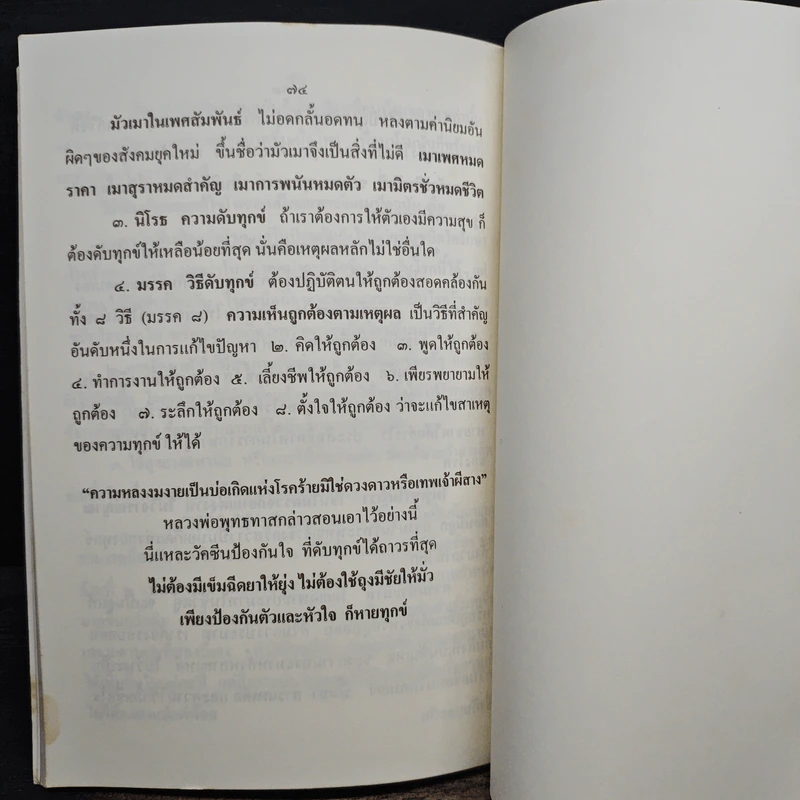 ๗๔
มัวเมาในเพศสัมพันธ์ ไม่อดกลั้นอดทน หลงตามค่านิยมอัน
ผิดๆของสังคมยุคใหม่ ขึ้นชื่อว่ามัวเมาจึงเป็นสิ่งที่ไม่ดี เมาเพศหมด
ราคา เมาสุราหมดสำคัญ เมาการพนันหมดตัว เมามิตรชั่วหมดชีวิต
๓. นิโรธ ความดับทุกข์ ถ้าเราต้องการให้ตัวเองมีความสุข ก็
ต้องดับทุกข์ให้เหลือน้อยที่สุด นั่นคือเหตุผลหลักไม่ใช่อื่นใด
๔. มรรค วิธีดับทุกข์ ต้องปฏิบัติตนให้ถูกต้องสอดคล้องกัน
ทั้ง ๘ วิธี (มรรค ๘) ความเห็นถูกต้องตามเหตุผล เป็นวิธีที่สำคัญ
อันดับหนึ่งในการแก้ไขปัญหา ๒. คิดให้ถูกต้อง ๓. พูดให้ถูกต้อง
๔. ทำการงานให้ถูกต้อง ๕. เลี้ยงชีพให้ถูกต้อง ๖. เพียรพยายามให้
ถูกต้อง ๗. ระลึกให้ถูกต้อง ๘. ตั้งใจให้ถูกต้อง ว่าจะแก้ไขสาเหตุ
ของความทุกข์ ให้ได้
“ความหลงงมงายเป็นบ่อเกิดแห่งโรคร้ายมิใช่ดวงดาวหรือเทพเจ้าผีสาง”
หลวงพ่อพุทธทาสกล่าวสอนเอาไว้อย่างนี้
นี่แหละวัคซีนป้องกันใจ ที่ดับทุกข์ได้ถาวรที่สุด
ไม่ต้องมีเข็มฉีดยาให้ยุ่ง ไม่ต้องใช้ถุงมีชัยให้มั่ว
เพียงป้องกันตัวและหัวใจ ก็หายทุกข์